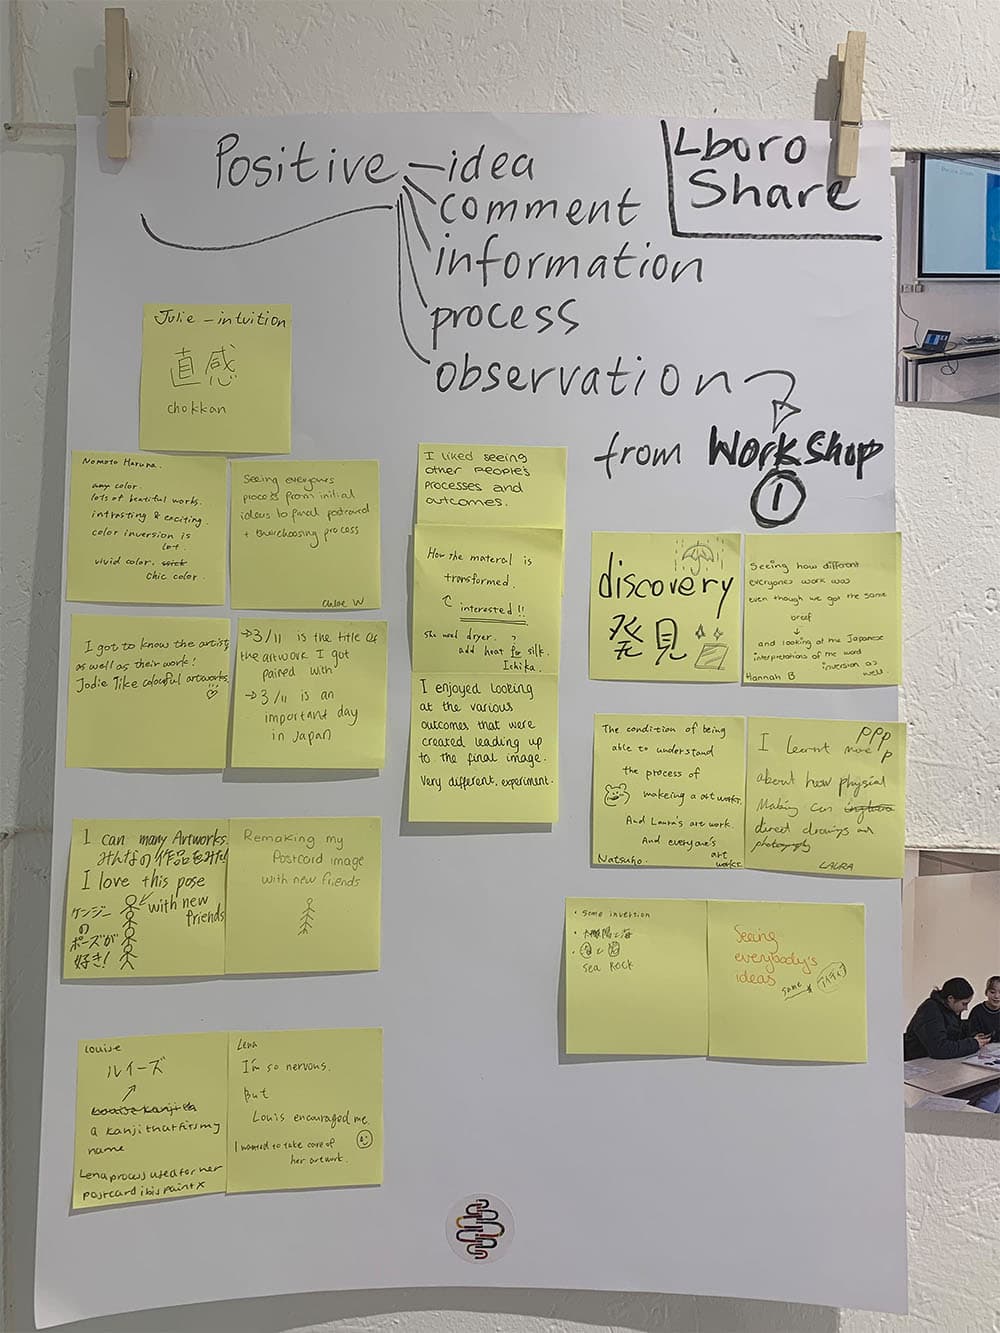 Positive
idea
comment
information
process
observation
from Workshop
1
Lboro
Share
Julie - intuition
直感
chokkan
Nomoto Haruna.
any color.
lots of beautiful works.
intrasting & exciting.
color inversion is
lot.
vivid color.
chic color.
Seeing everyones
process from initial
ideas to final postcard
+ their choosing process
Chloe W
I got to know the artists
as well as their work!
Jodie like colourful artworks.
→ 3/11 is the title of
the artwork I got
paired with
→ 3/11 is an
important day
in Japan
I can many Artworks.
みんなの作品をみた!
I love this pose
with new
friends
ケンジー
の
ポーズが
好き!
Remaking my
Postcard image
with new friends
Louise
ルイーズ
a kanji that fits my
name
Lena process used for her
postcard ibis paint x
Lena
I'm so nervous.
But
Louis encouraged me.
I wanted to take care of
her artwork.
I liked seeing
other People's
processes and
outcomes.
How the materal is
transformed.
interested!!
she used dryer.
add heat for silk.
Ichika.
I enjoyed looking
at the various
outcomes that were
created leading up
to the final image.
Very different, experiment.
discovery
発見
Seeing how different
everyones work was
even though we got the same
breef
↓
and looking at the Japanese
interpretations of the word
inversion as
well
Hannah B
The condition of being
able to understand
the process of
makeing a art works.
And Laura's art work.
And everyone's
art
works.
Natsuko.
I learnt more
about how physical
Making can
direct drawings and
photography
LAURA
• Same invertion
海
sea Rock
Seeing
everybody's
ideas
same
アイディア